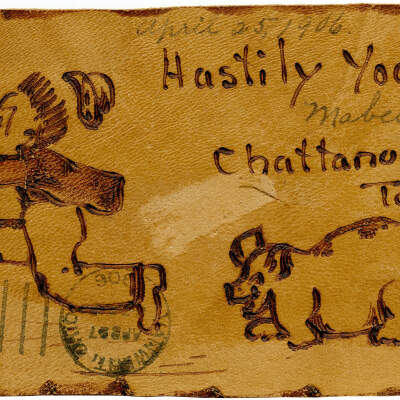 April 25, 1906.
Hastily Yo
Mabe
Chattano
T
APR 27